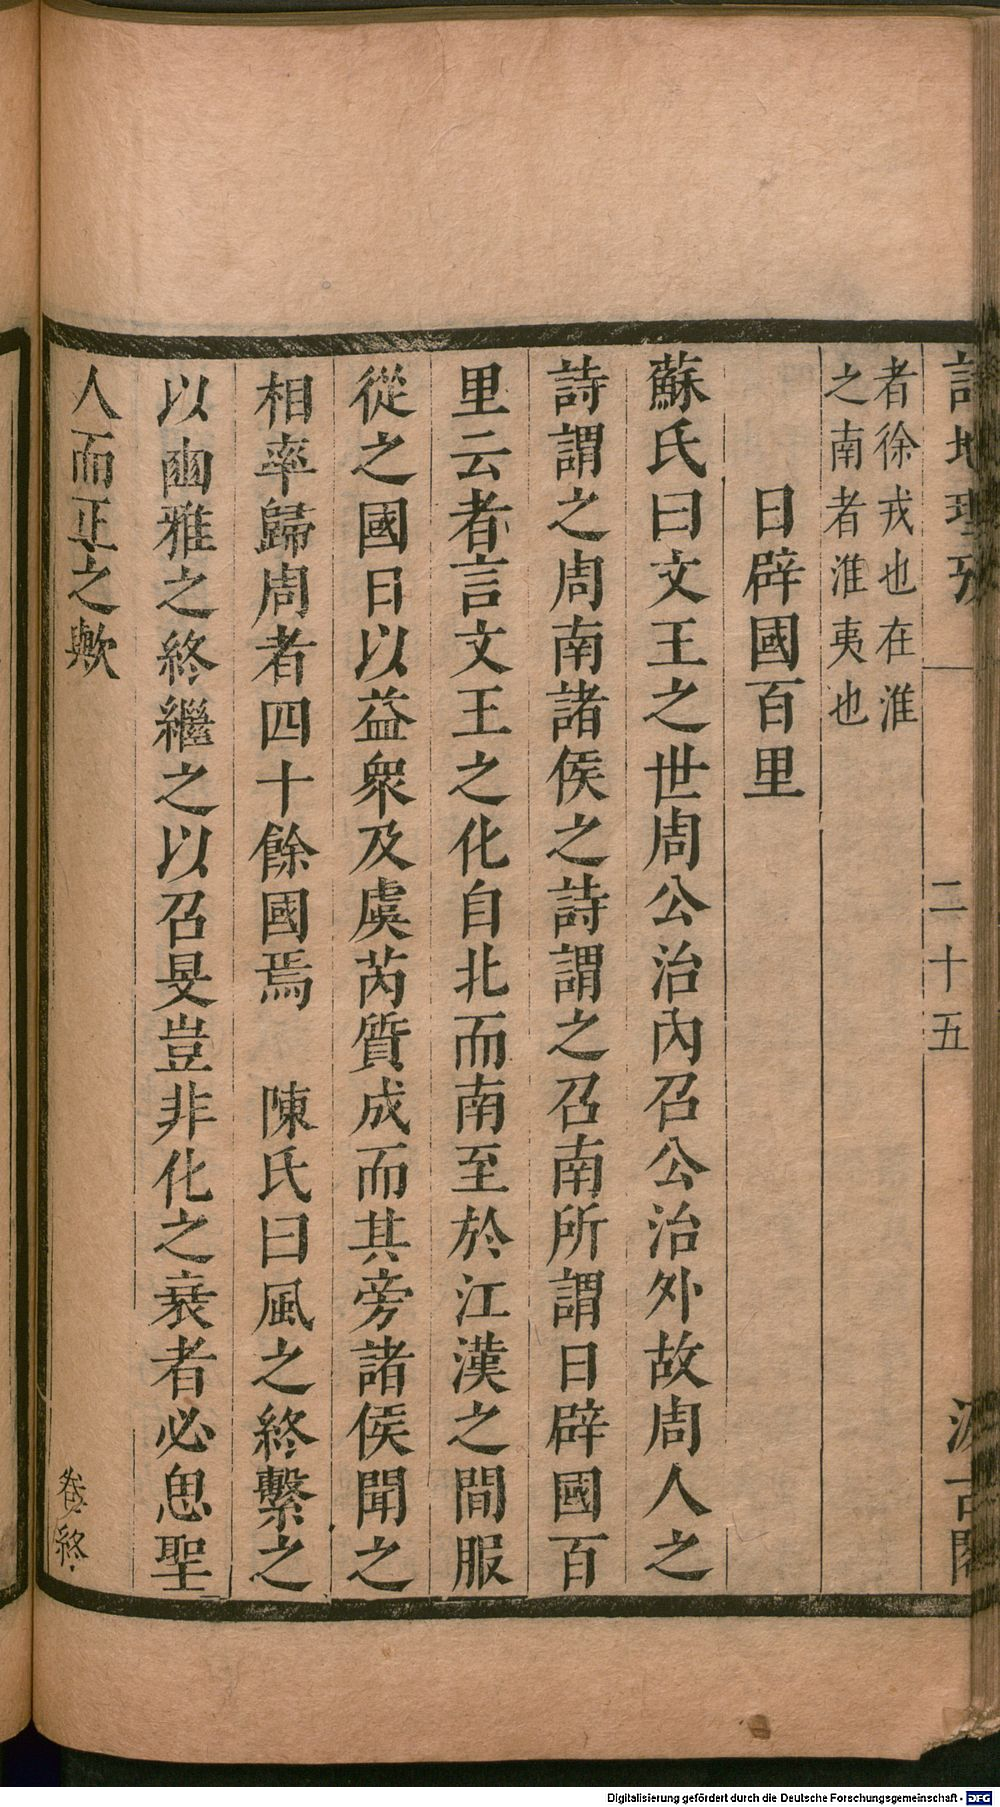 詩地理攷
二十五
汲古閣
者徐戎也在淮
之南者淮夷也
日辟國百里
蘇氏曰文王之世周公治內召公治外故周人之
詩謂之周南諸侯之詩謂之召南所謂日辟國百
里云者言文王之化自北而南至於江漢之間服
從之國日以益衆及虞芮質成而其旁諸侯聞之
相率歸周者四十餘國焉　陳氏曰風之終繫之
以豳雅之終繼之以召旻豈非化之衰者必思聖
人而正之歟
卷終
Digitalisierung gefördert durch die Deutsche Forschungsgemeinschaft - DFG